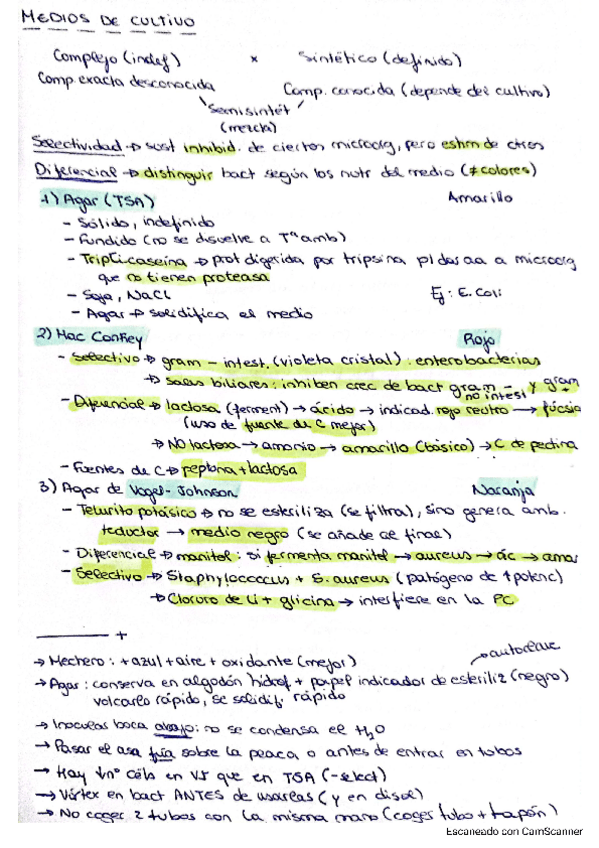 MEDIOS DE CULTIVO
Complejo (indef) x Sintético (definido)
Comp. exacta desconocida Comp. conocida (depende del cultivo)
Semisintét
(mezcla)
Selectividad → sust inhibid. de ciertos microorg, pero estim de otros
Diferencial → distinguir bact según los nutr del medio (≠ colores)
1) Agar (TSA) Amarillo
- Sólido, indefinido
- Fundido (no se disuelve a Tª amb)
- Tripticaseína → prot digerida por tripsina p/ dar aa a microorg
que no tienen proteasa
- Soja, NaCl Ej: E. Coli
- Agar → solidifica el medio
2) Mac Conkey Rojo
- Selectivo → gram - intest. (violeta cristal): enterobacterias
→ sales biliares: inhiben crec de bact gram - no intest y gram +
- Diferencial → lactosa (ferment) → ácido → indicad. rojo neutro → fúcsia
(uso de fuente de C mejor)
→ NO lactosa → amonio → amarillo (básico) → C de peptona
- Fuentes de C → peptona + lactosa
3) Agar de Vogel-Johnson Naranja
- Telurito potásico → no se esteriliza (se filtra), sino genera amb.
reductor → medio negro (se añade al final)
- Diferencial → manitol: si fermenta manitol → aureus → ác → amar
- Selectivo → Staphylococcus + S. aureus (patógeno de ↑ potenc)
→ Cloruro de Li + glicina → interfiere en la PC
+
→ Mechero: + azul + aire + oxidante (mejor) autoclave
→ Agar: conserva en algodón hidrof + papel indicador de esteriliz (negro)
volcarlo rápido, se solidif. rápido
→ Inocular boca abajo: no se condensa el H₂O
→ Pasar el asa fría sobre la placa o antes de entrar en tubos
→ Hay ↓ nº céls en VJ que en TSA (-select)
→ Vórtex en bact ANTES de usarlas (y en disol)
→ No coger 2 tubos con la misma mano (coger tubo + tapón)
Escaneado con CamScanner